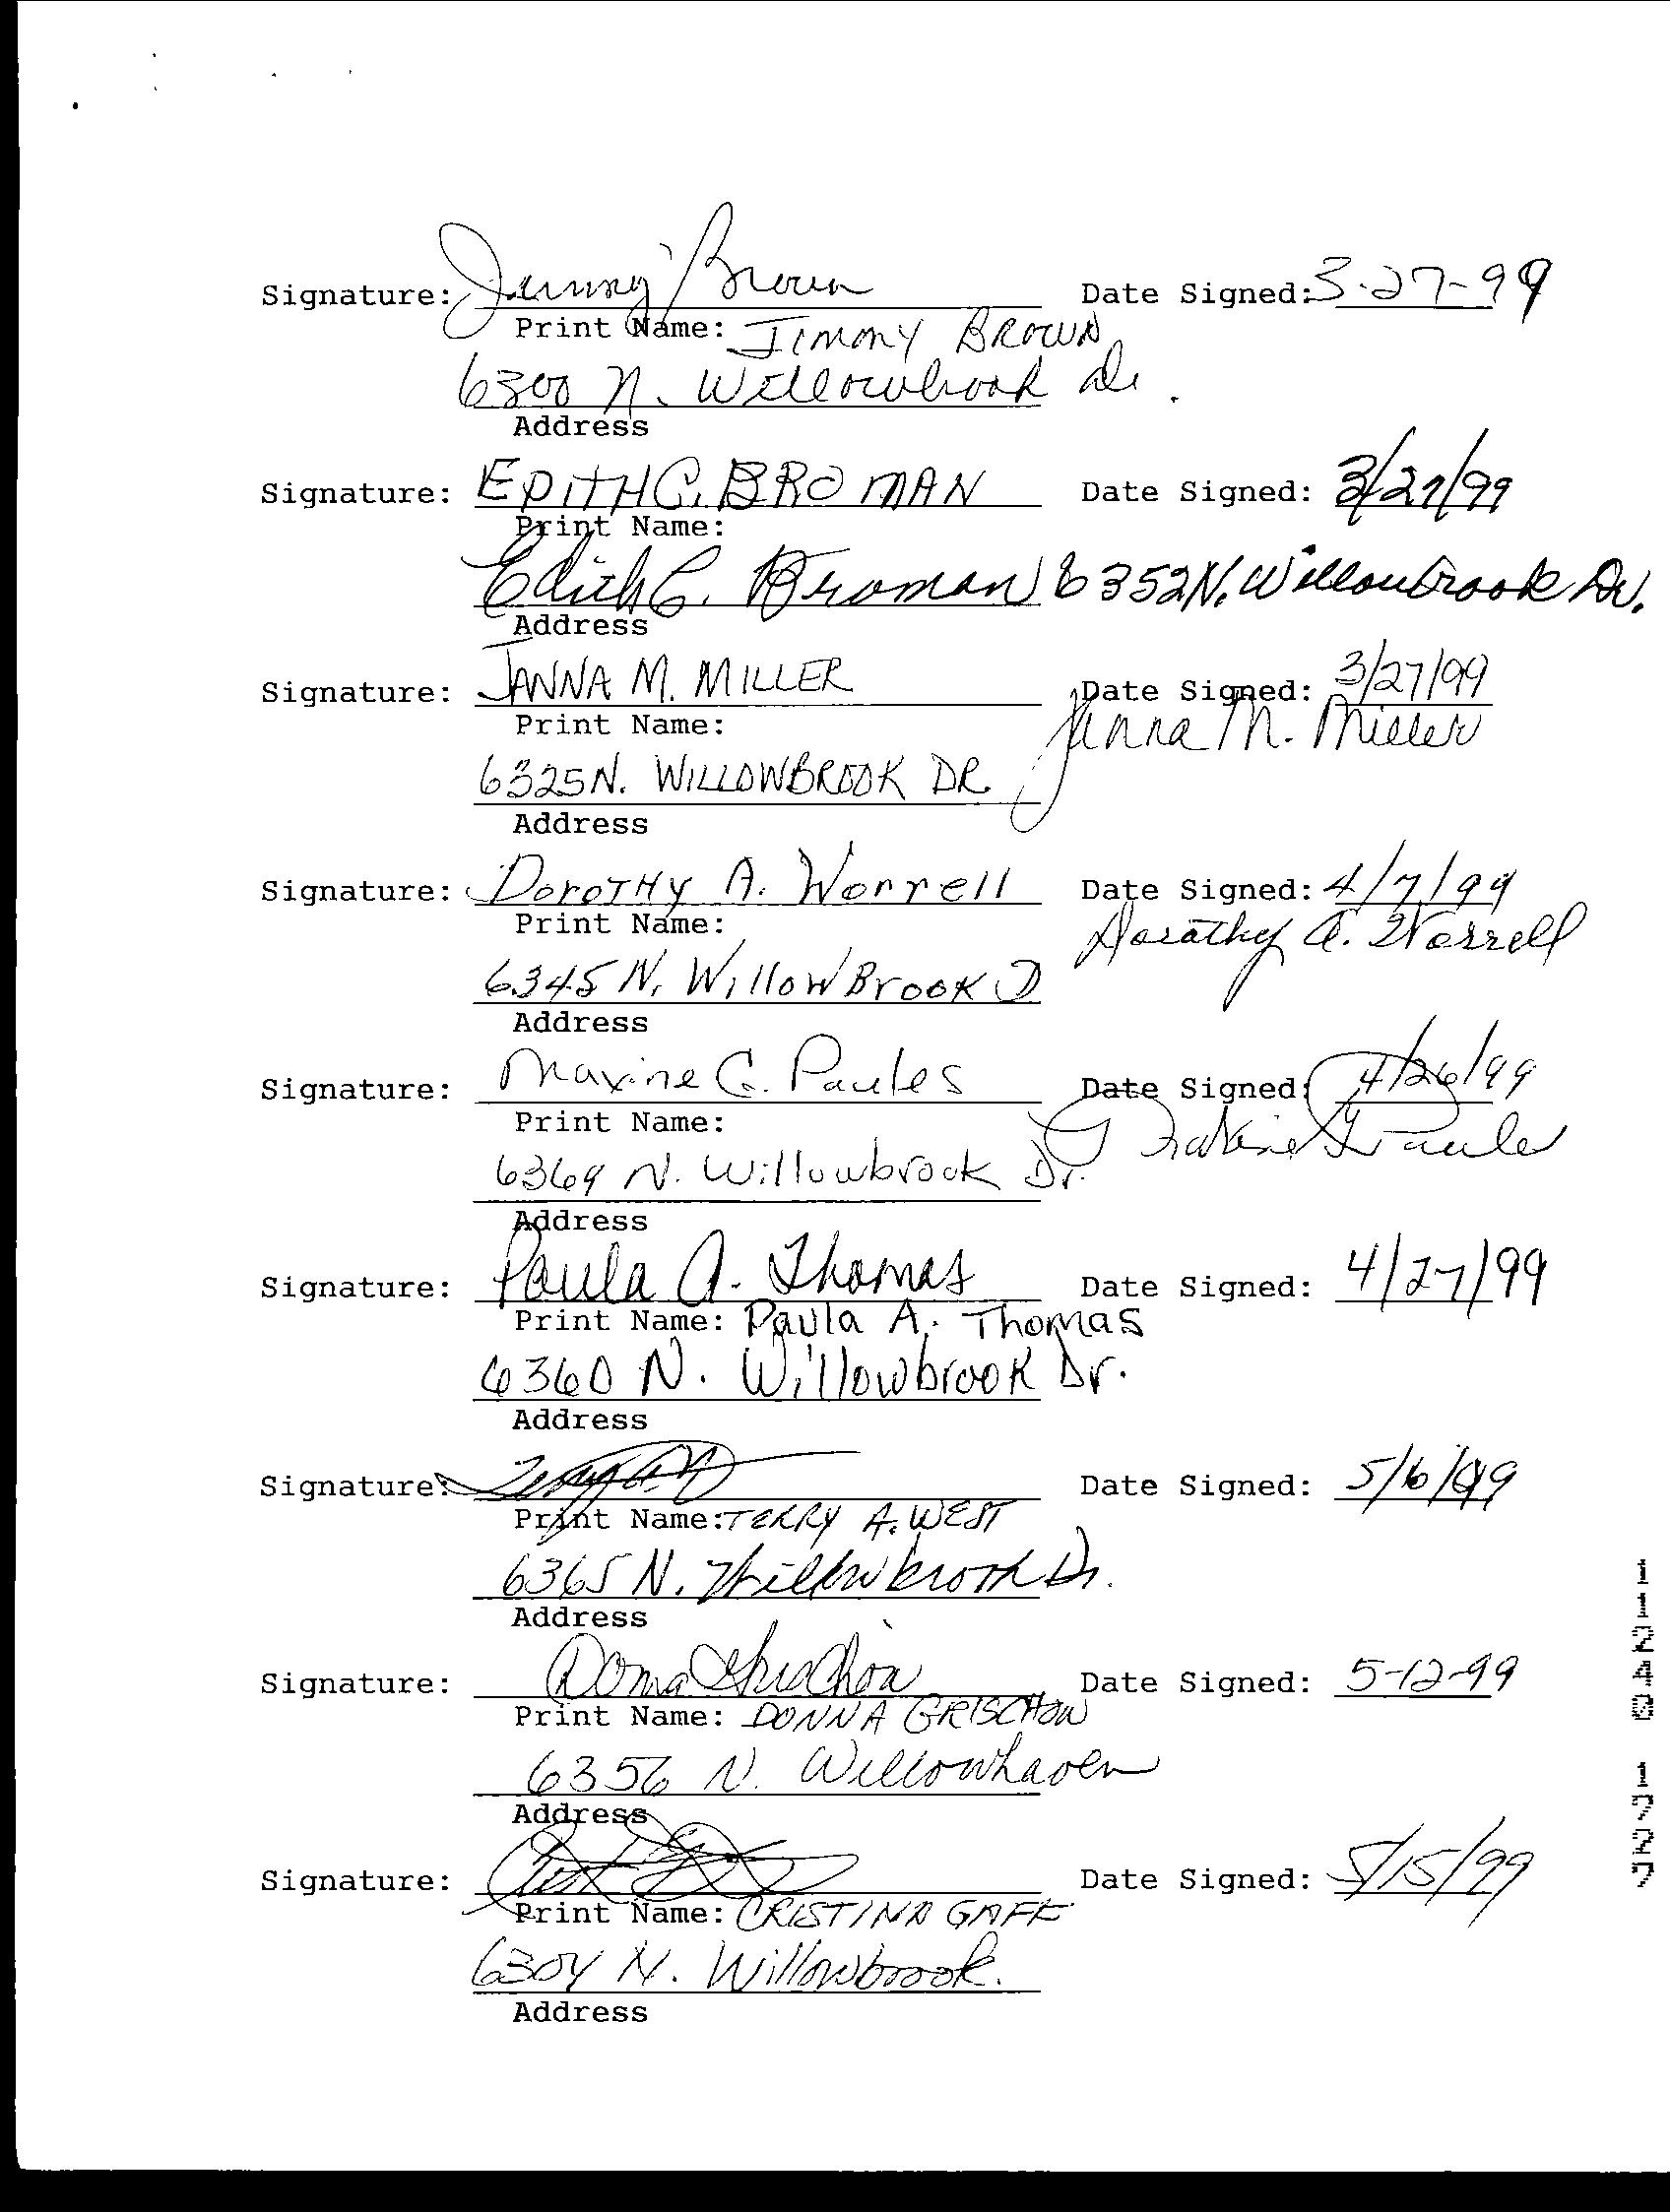 Signature: Jimmy Brown Date Signed: 3-27-99
Print Name: JIMMY BROWN
6300 N. Willowbrook Dr.
Address
Signature: EDITH C. BROMAN Date Signed: 3/27/99
Print Name:
Edith C. Broman 6352 N. Willowbrook Dr.
Address
Signature: JANNA M. MILLER Date Signed: 3/27/99
Print Name: Janna M. Miller
6325 N. WILLOWBROOK DR.
Address
Signature: DoroTHy A. Worrell Date Signed: 4/7/99
Print Name: Dorothy A. Worrell
6345 N. WillowBrook D
Address
Signature: Maxine G. Paules Date Signed: 4/26/99
Print Name: Maxine G. Paules
6369 N. Willowbrook Dr.
Address
Signature: Paula A. Thomas Date Signed: 4/27/99
Print Name: Paula A. Thomas
6360 N. Willowbrook Dr.
Address
Signature: Date Signed: 5/6/99
Print Name: TERRY A. WEST
6365 N. Willowbrook Dr.
Address
Signature: Donna Grischow Date Signed: 5-12-99
Print Name: DONNA GRISCHOW
6356 N. Willowhaven
Address
Signature: Date Signed: 5/15/99
Print Name: CRISTINA GAFF
6304 N. Willowbrook.
Address